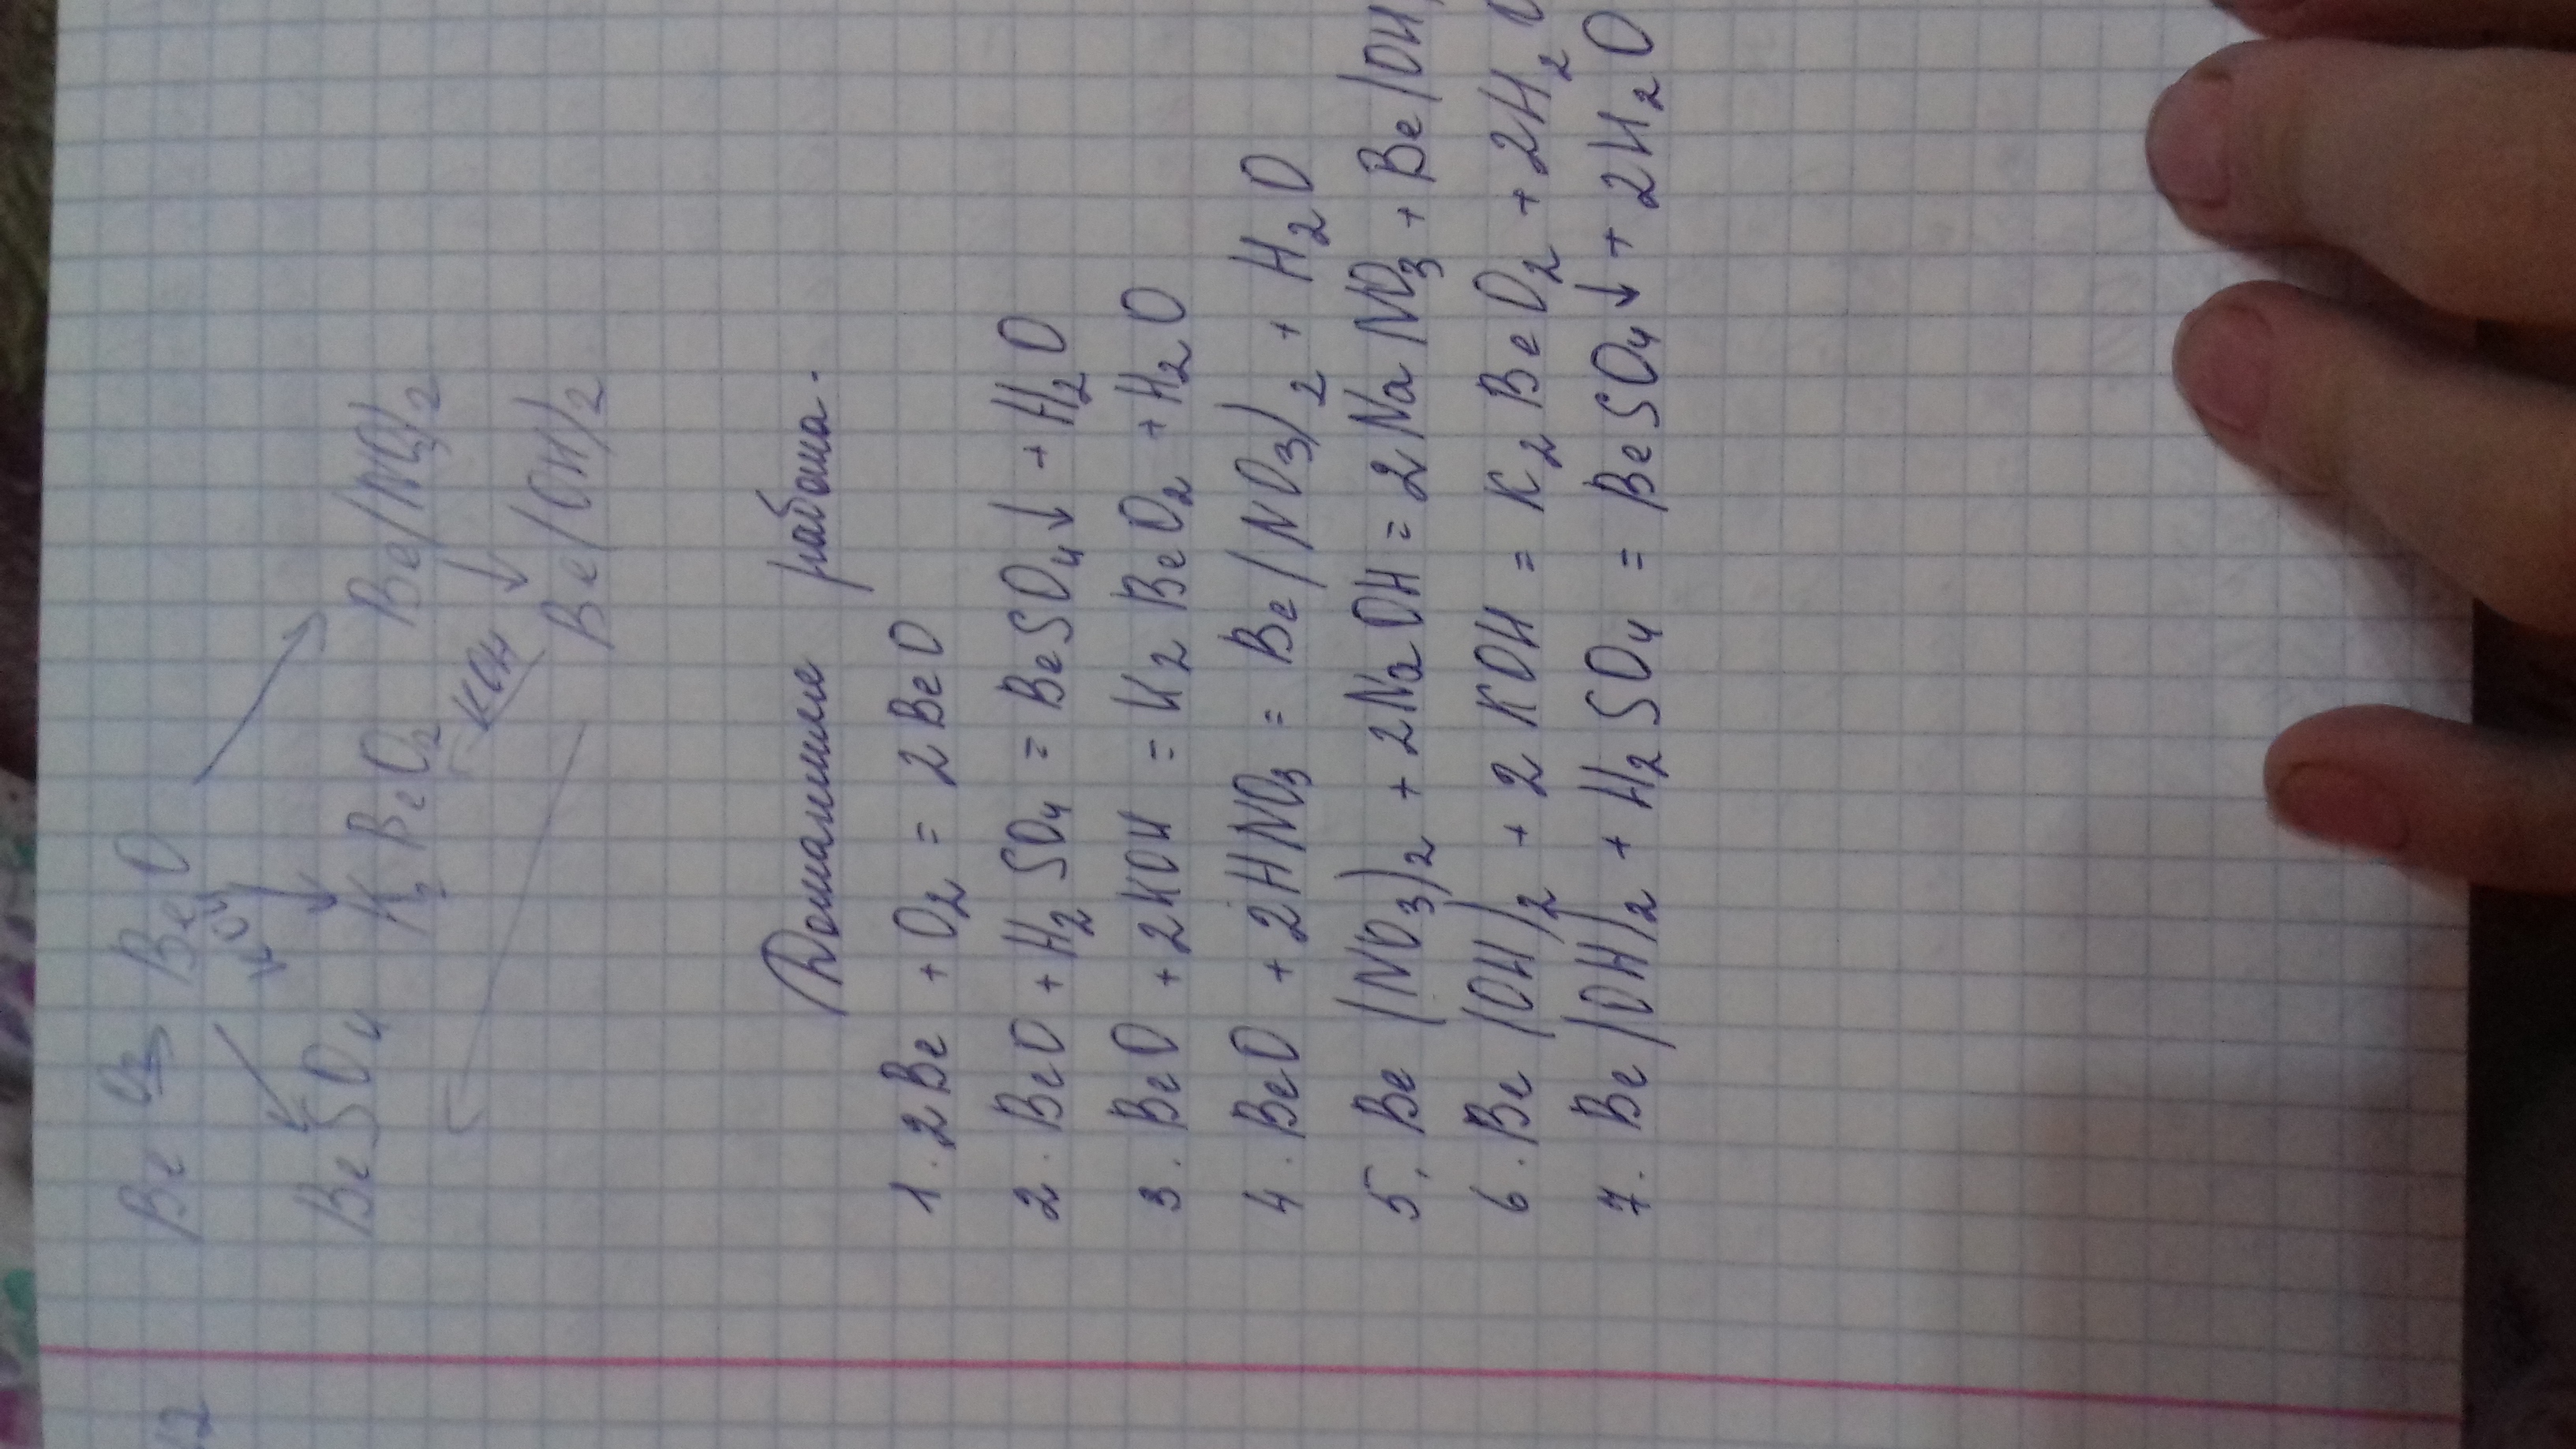 12
Be O₂→ BeO
KOH
BeSO₄ K₂BeO₂ Be(NO₃)₂
KOH
Be(OH)₂
Домашняя работа.
1. 2Be + O₂ = 2BeO
2. BeO + H₂SO₄ = BeSO₄↓ + H₂O
3. BeO + 2KOH = K₂BeO₂ + H₂O
4. BeO + 2HNO₃ = Be(NO₃)₂ + H₂O
5. Be(NO₃)₂ + 2NaOH = 2NaNO₃ + Be(OH)
6. Be(OH)₂ + 2KOH = K₂BeO₂ + 2H₂O
7. Be(OH)₂ + H₂SO₄ = BeSO₄↓ + 2H₂O